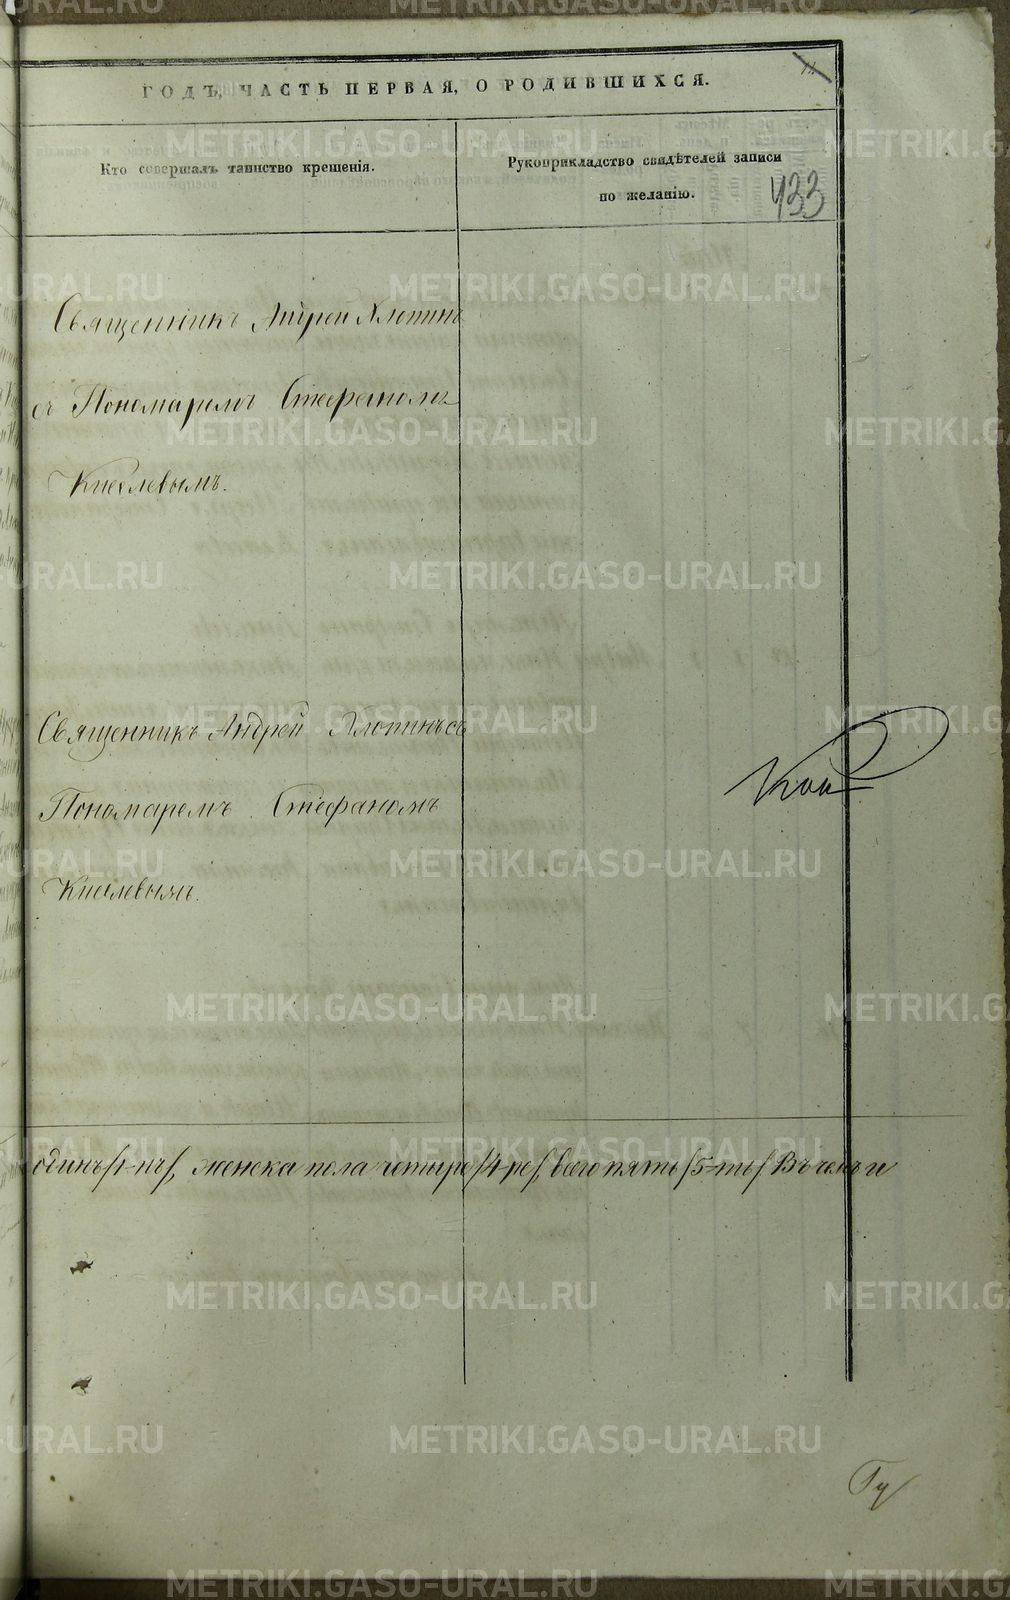 11
ГОДЪ, ЧАСТЬ ПЕРВАЯ, О РОДИВШИХСЯ.
Кто совершалъ таинство крещенія.
Рукоприкладство свидѣтелей записи
по желанію.
433
Священникъ Андрей Хлопинъ
съ Пономаремъ Стефаномъ
Киселевымъ.
Священникъ Андрей Хлопинъ съ
Пономаремъ Стефаномъ
Киселевымъ.
одинъ /1-нъ/, женска пола четыре /4-ре/, всего пять /5-ть/ Въ чемъ и
METRIKI.GASO-URAL.RU